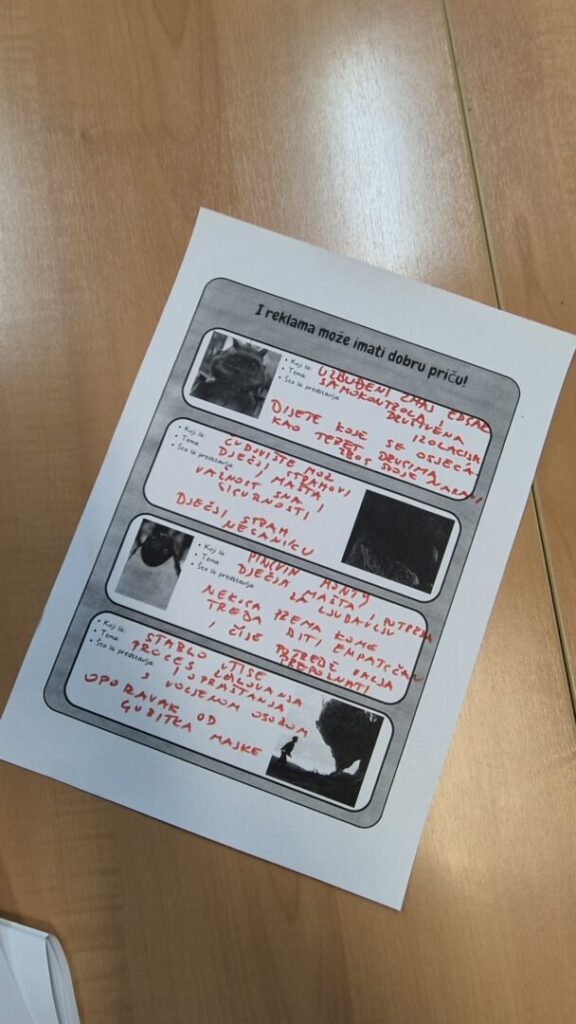 I reklama može imati dobru priču!
• Koji lik: UZBUĐENI ZMAJ EDGAR
• Tema: SAMOKONTROLA I DRUŠTVENA IZOLACIJA
• Što lik predstavlja:
DIJETE KOJE SE OSJEĆA
KAO TERET DRUGIMA
ZBOG SVOJE NARAVI
• Koji lik: ČUDOVIŠTE MOZ
• Tema: DJEČJI STRAHOVI
• Što lik predstavlja: DJEČJI MAŠTA
VAŽNOST SNA I
SIGURNOSTI
DJEČJI STRAH
• Koji lik: PINGVIN MONTY
• Tema: DJEČJA MAŠTA, POTREBA
• Što lik predstavlja: ZA LJUBAVLJU
NEKOGA PREMA KOME
TREBA BITI EMPATIČAN
I ČIJE POTREBE VALJA
PREPOZNATI
• Koji lik: STABLO UTJEHE
• Tema: PROCES TUGOVANJA
• Što lik predstavlja: I OPRAŠTANJA
S VOLJENOM OSOBOM
OPORAVAK OD
GUBITKA MAJKE